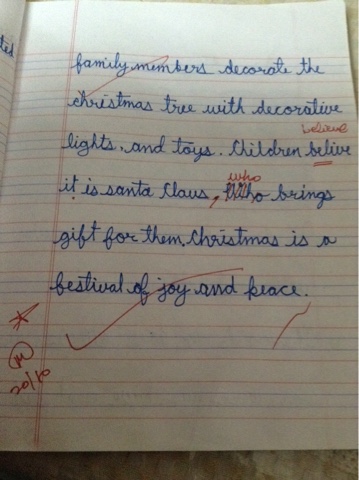 ted
family members decorate the
christmas tree with decorative
believe
lights, and toys. Children belive
who
it is santa claus, who brings
gift for them. Christmas is a
festival of joy and peace.
20/10